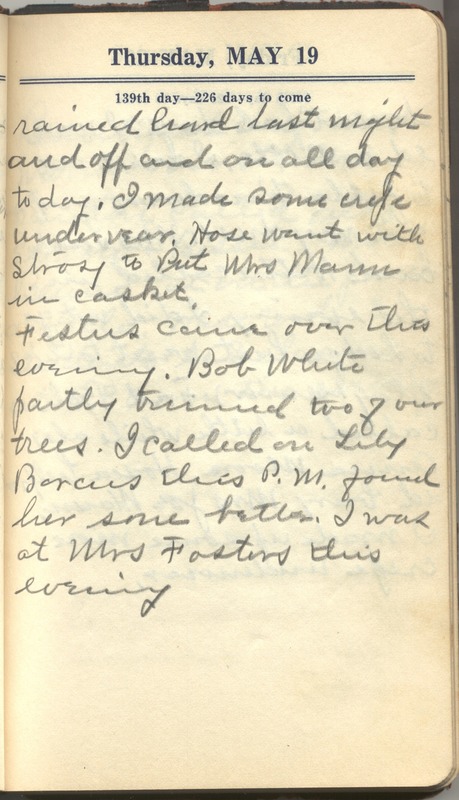 Thursday, MAY 19
139th day—226 days to come
rained hard last night
and off and on all day
to day. I made some crepe
underwear. Hose want with
Strosy to Put Mrs Mann
in casket.
Festus came over this
evening. Bob White
partly trimed two of our
trees. I called on Lily
Barcus this P.M. found
her some better. I was
at Mrs Fosters this
evening